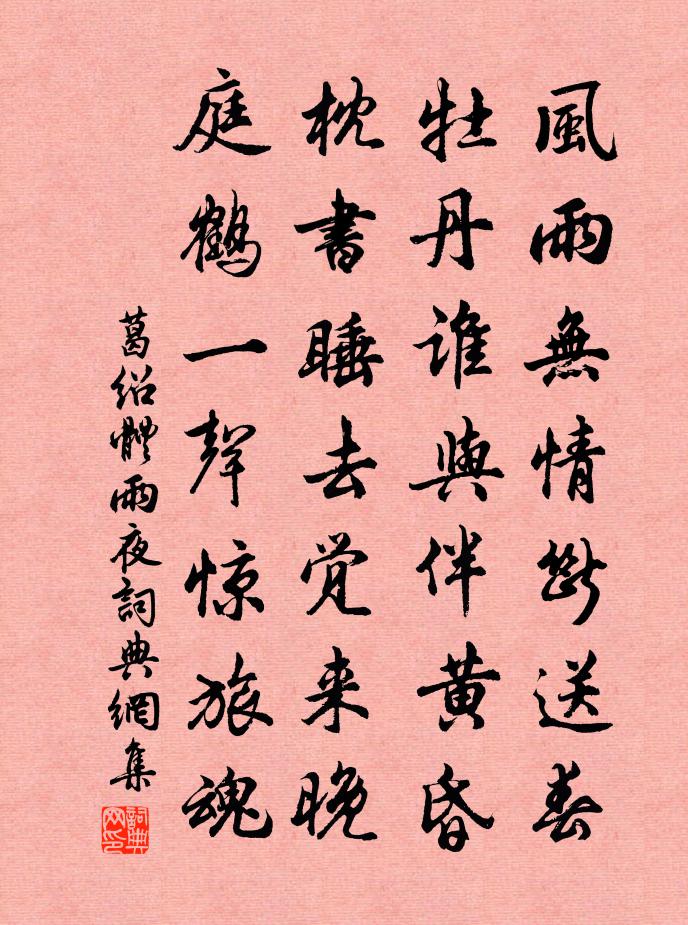 風雨無情斷送春
牡丹誰與伴黄昏
枕書睡去觉来晚
庭鶴一聲惊旅魂
葛绍體雨夜詞典網集
詞典網印